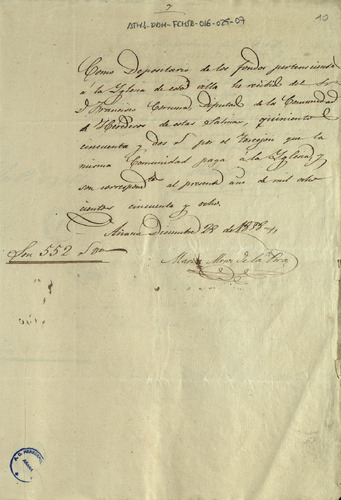 7
ATHA-DAH-FCHSB-016-029-07
10
Como Depositario de los fondos pertenecientes
á la Yglesia de esta villa he recibido del Sor
D Francisco Diputado de la Comunidad
de Herederos de estas Salinas, quinientos
cincuenta y dos rs por el que la
misma Comunidad paga á la Yglesia, y
son correspondtes al presente año de mil ocho
cientos cincuenta y ocho.
Añana Diciembre 28 de 1858
Son 552 rs vn
de la